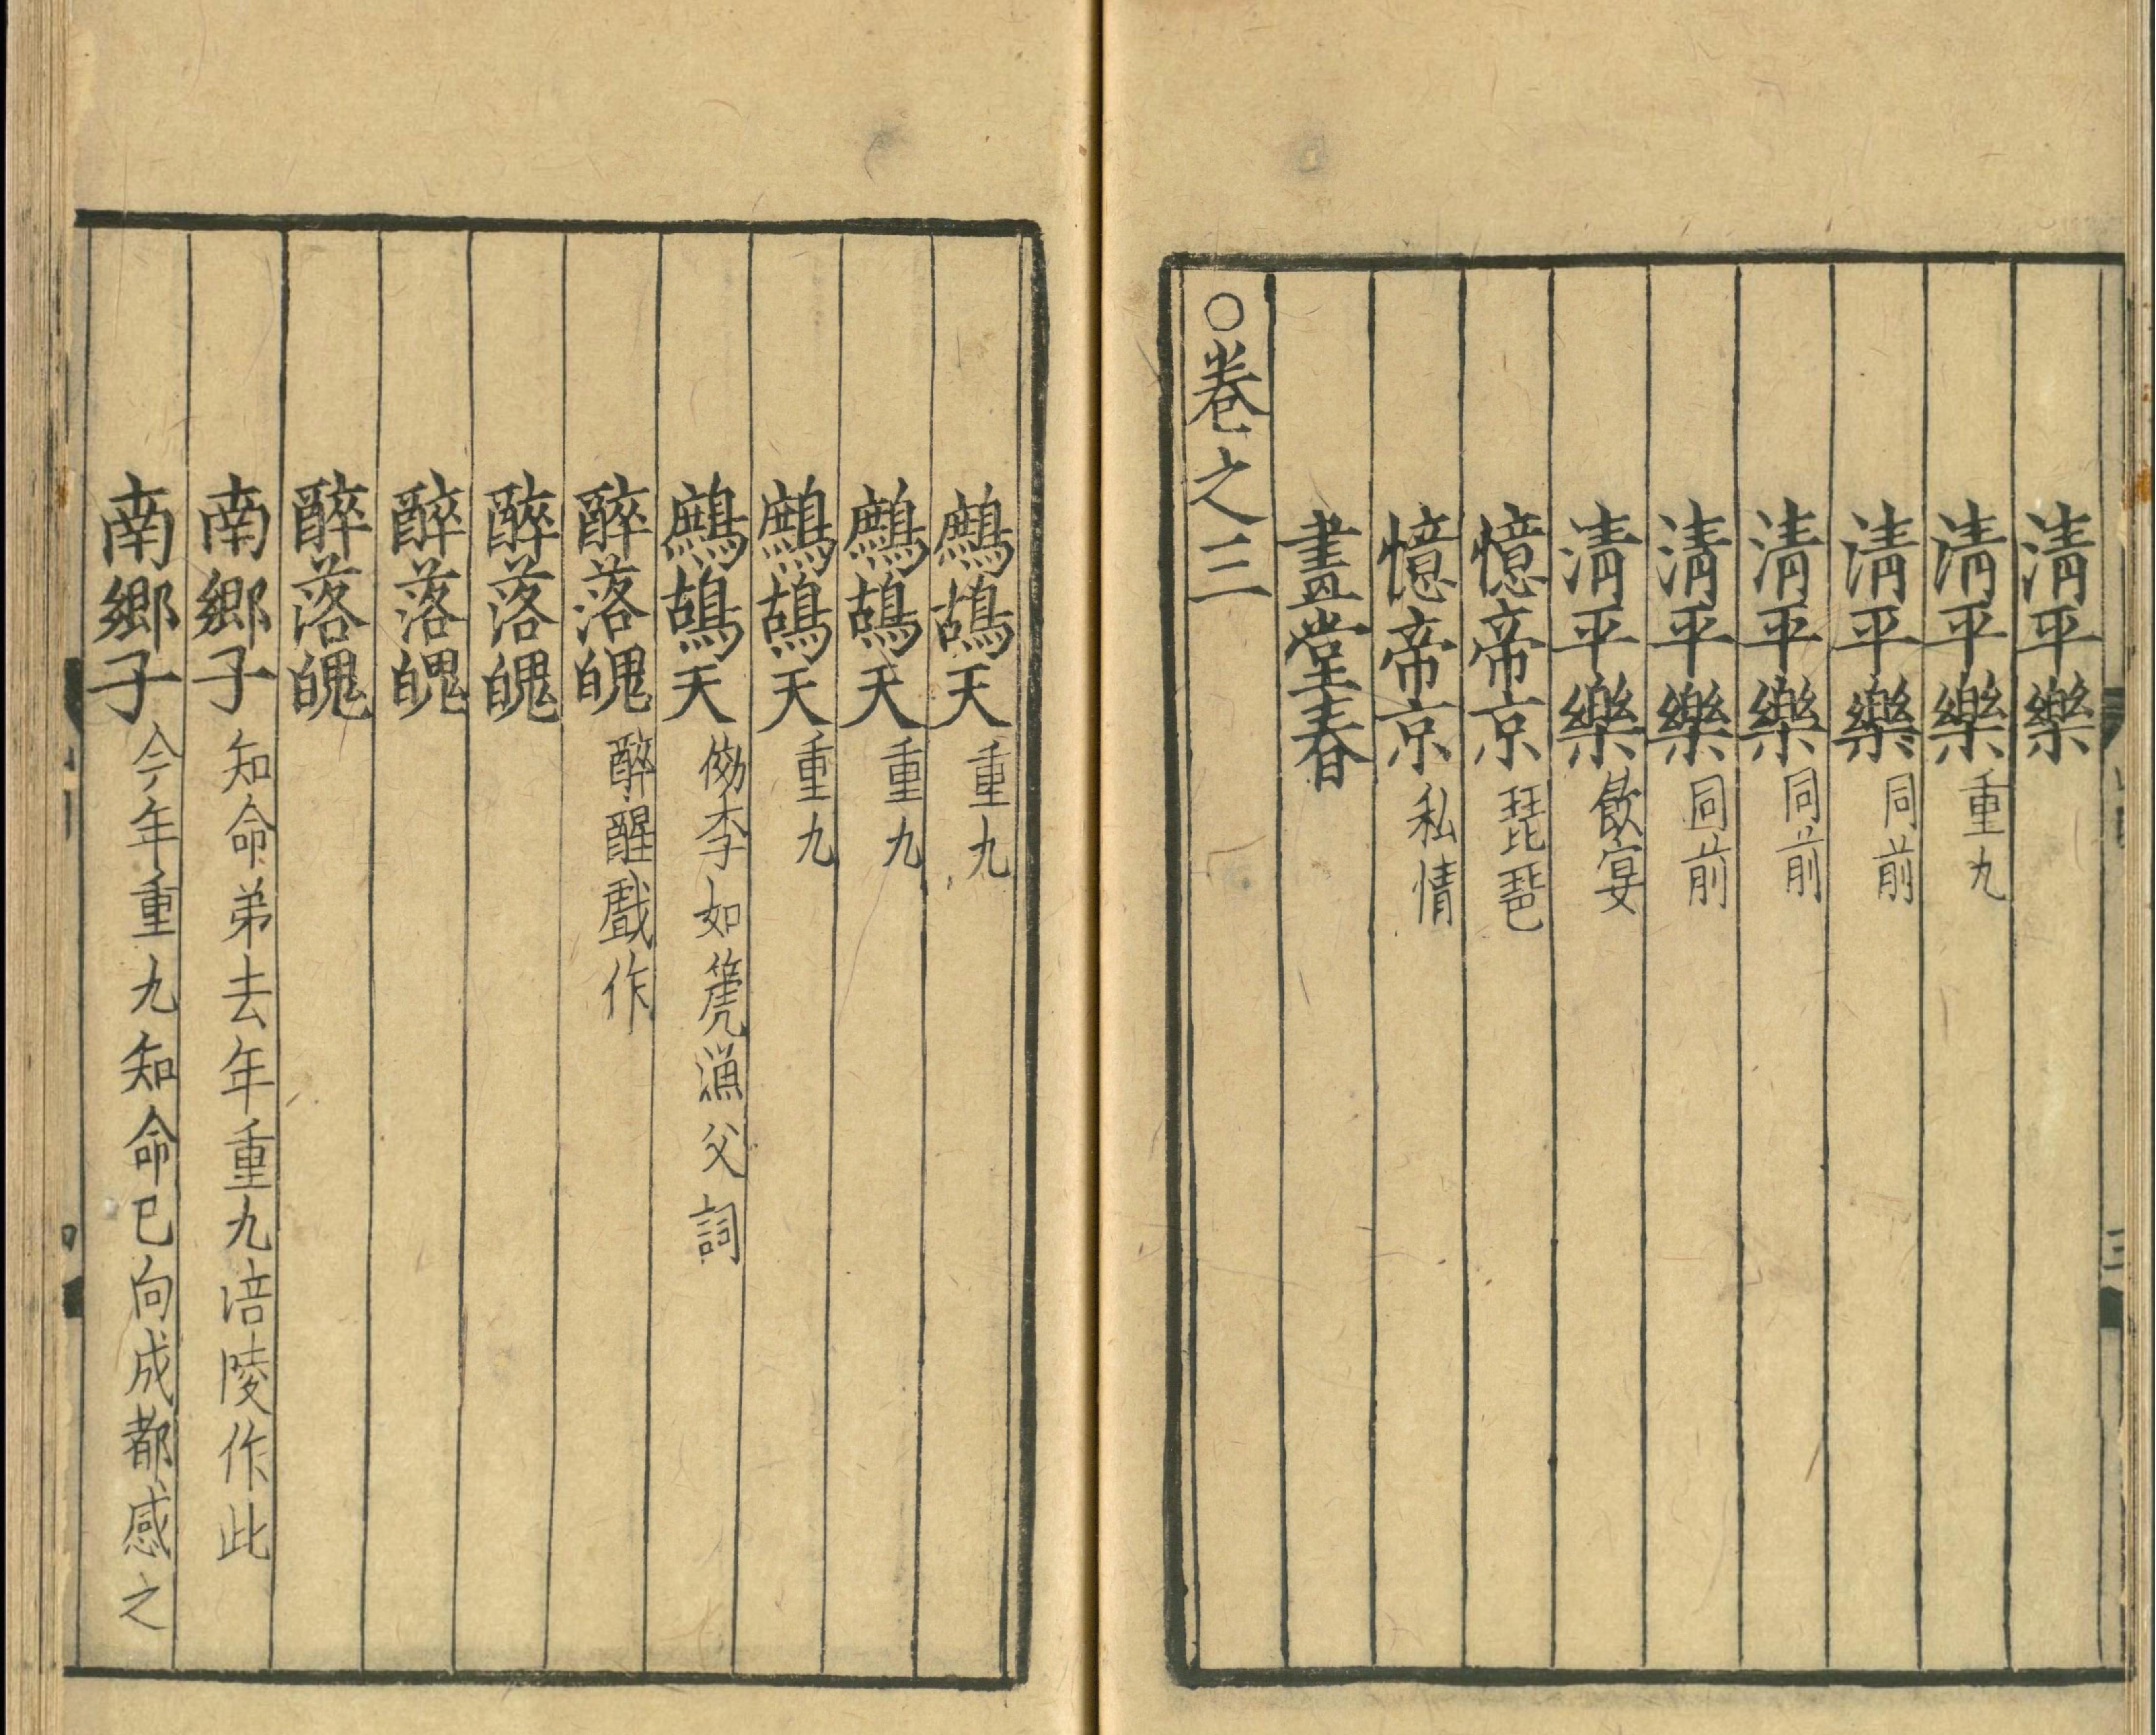 清平樂
清平樂重九
清平樂同前
清平樂同前
清平樂同前
清平樂飲宴
憶帝京琵琶
憶帝京私情
畫堂春
○卷之三
鷓鴣天重九
鷓鴣天重九
鷓鴣天重九
鷓鴣天効李如箎漁父詞
醉落魄醉醒戲作
醉落魄
醉落魄
醉落魄
南鄉子知命弟去年重九涪陵作此
南鄉子今年重九知命已向成都感之
三